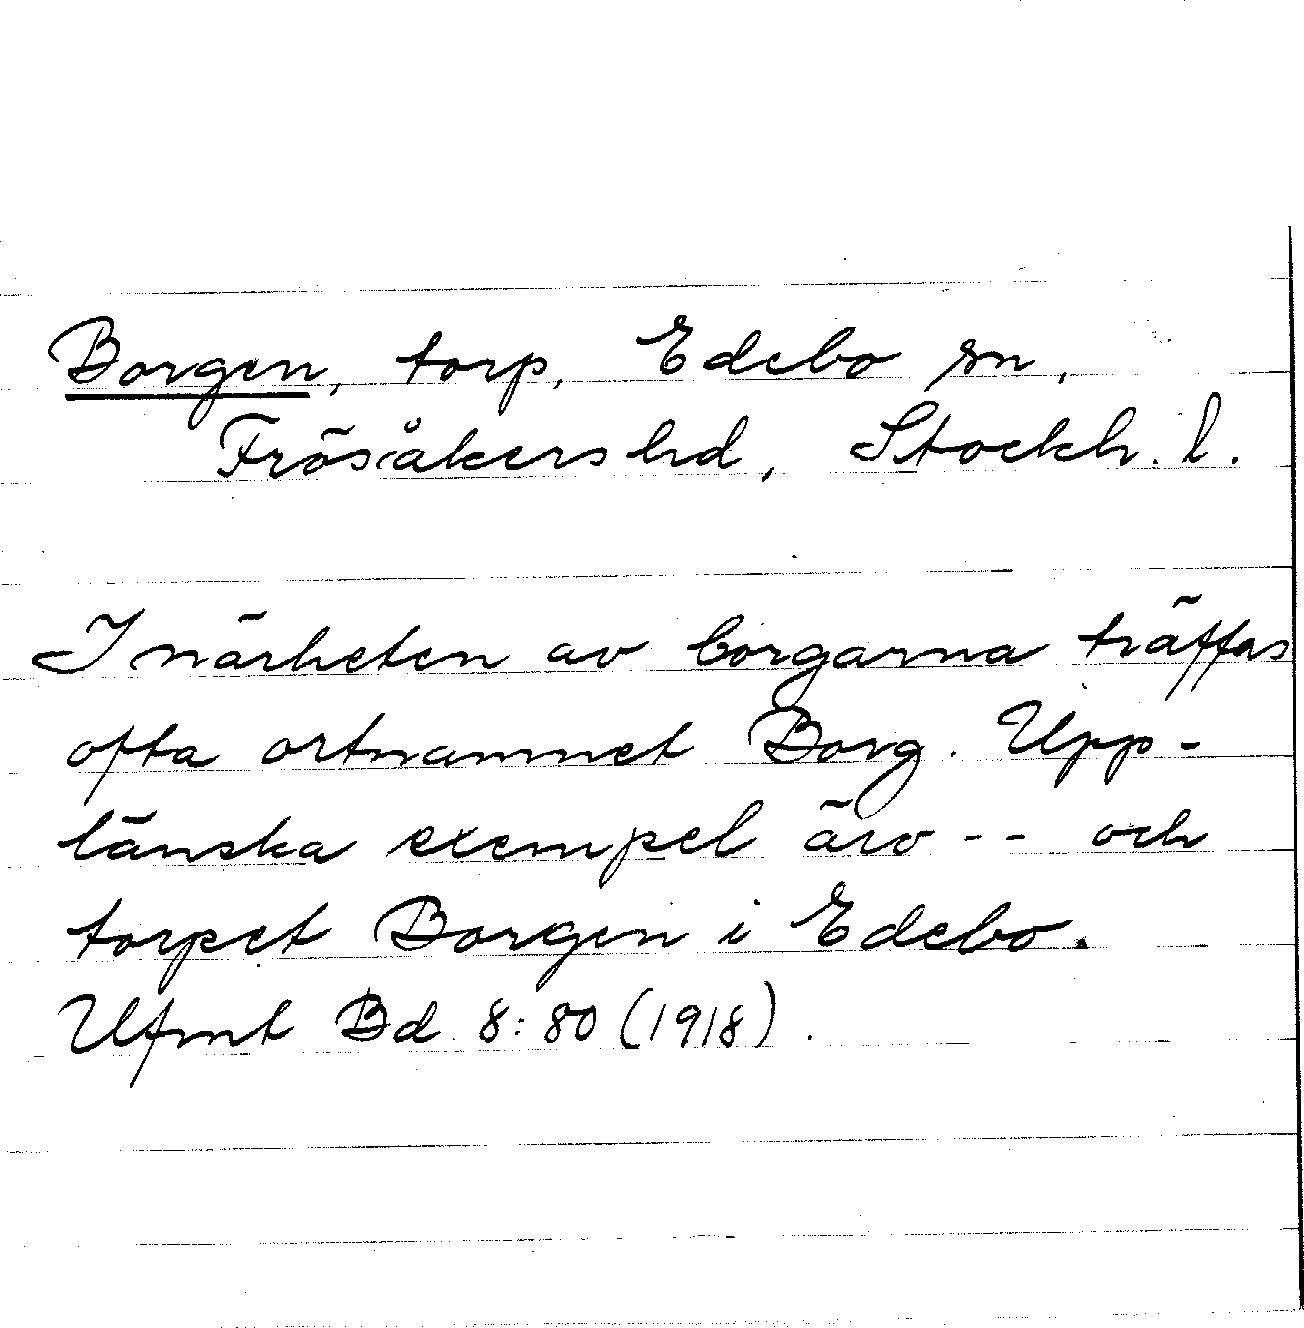 Borgen, torp, Edebo sn,
Frösåkers hd, Stockh. l.
I närheten av borgarna träffas
ofta ortnamnet Borg. Upp-
länska exempel äro -- och
torpet Borgen i Edebo.
Ufmt Bd 8:80 (1918).